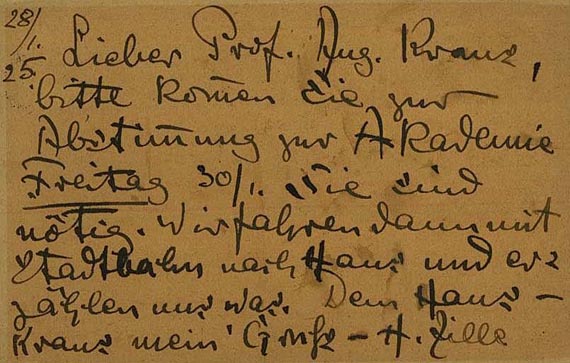 28/1.25.
Lieber Prof. Aug. Kraus,
bitte kom̄en Sie zur
Abstim̄ung zur Akademie
Freitag 30/1. Sie sind
nötig. Wir fahren dann mit
Stadtbahn nach Haus und er=
zählen uns was. Dem Haus –
Kraus mein Gruß – H. Zille